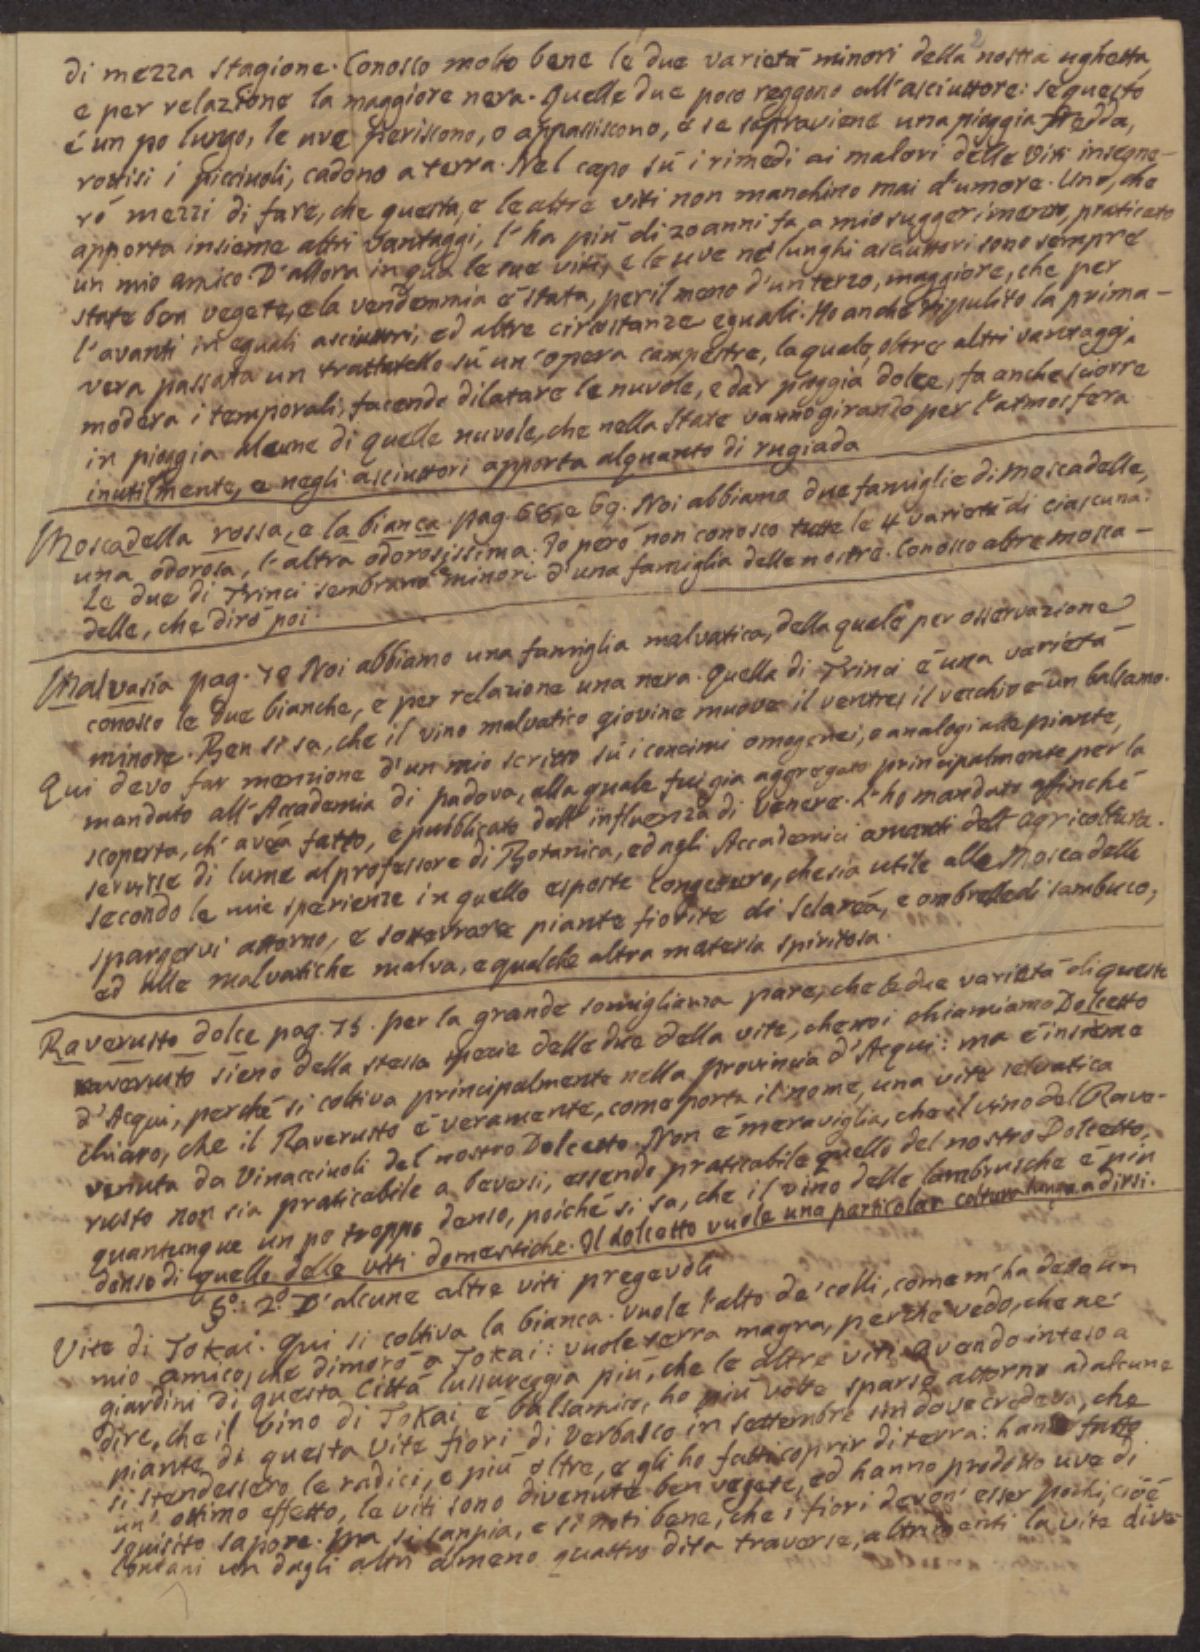 2
di mezza stagione. Conosco molto bene le due varietá minori della nostra ughetta,
e per relazione la maggiore nera. Quelle due poco reggono all'asciuttore: se questo
é un po lungo, le uve periscono, o appassiscono, e se sopraviene una pioggia fredda,
rottisi i picciuoli, cadono a terra. Nel capo sú i rimedi ai malori delle viti insegne-
ró mezzi di fare, che questa, e le altre viti non manchino mai d'umore. Uno, che
apporta insieme altri vantaggi, l'ha piú di 20 anni fa, a mio suggerimento, praticato
un mio amico. D'allora in qua le sue viti, e le uve ne' lunghi asciuttori sono sempre
state ben vegete, e la vendemmia é stata, per il meno d'un terzo, maggiore, che per
l'avanti in eguali asciuttori, ed altre circostanze eguali. Ho anche ripulito la prima-
vera passata un trattatello sú un'opera campestre, la quale, oltre altri vantaggi,
modera i temporali, facendo dilatare le nuvole, e dar pioggia dolce, fa anche sciorre
in pioggia alcune di quelle nuvole, che nella state vanno girando per l'atmosfera
inutilmente, e negli asciuttori apporta alquanto di rugiada
Moscadella rossa, e la bianca. pag. 68, e 69. Noi abbiamo due famiglie di moscadelle,
una odorosa, l'altra odorosissima. Io peró non conosco tutte le 4 varietá di ciascuna.
Le due di Trinci sembrano le minori d'una famiglia delle nostre. Conosco altre mosca-
delle, che diró poi.
Malvasia pag. 70 Noi abbiamo una famiglia malvatica, della quale per osservazione
conosco le due bianche, e per relazione una nera. Quella di Trinci é una varietá
minore. Ben si sa, che il vino malvatico giovine muove il ventre, il vecchio é un balsamo.
Qui devo far menzione d'un mio scritto sú i concimi omogenei, o analogi alle piante,
mandato all'Accademia di padova, alla quale fui gia aggregato principalmente per la
scoperta, ch'avea fatto, e pubblicato dell'influenza di Venere. L'ho mandato affinché
servisse di lume al professore di Botanica, ed agli Accademici amanti dell'agricoltura.
secondo le mie sperienze in quello esposte congetturo, che sia utile alle Moscadelle
spargervi attorno, e sotterrare piante fiorite di sclarea, e ombrelle di sambuco,
ed alle malvatiche malva, e qualche altra materia spiritosa.
Raverusto dolce pag. 75. per la grande somiglianza pare, che le due varietá di queste
raverusto sieno della stessa spezie delle due della vite, che noi chiamiamo Dolcetto
d'Acqui, perché si coltiva principalmente nella provincia d'Acqui: ma é insieme
chiaro, che il Raverusto é veramente, come porta il nome, una vite selvatica
venuta da Vinacciuoli del nostro Dolcetto. Non é meraviglia, che il vino del Rave-
rusto non sia praticabile a beversi, essendo praticabile quello del nostro Dolcetto,
quantunque un po troppo denso, poiché si sa, che il vino delle lambrusche é piu
denso di quello delle viti domestiche. Il dolcetto vuole una particolar coltura lunga a dirsi.
§o. 2o. D'alcune altre viti pregevoli
Vite di Tokai. Qui si coltiva la bianca. vuole l'alto de' colli, come m'ha detto un
mio amico, che dimoró a Tokai: vuole terra magra, perché vedo, che ne'
giardini di questa Cittá lussureggia piú, che le altre viti. Avendo inteso a
dire, che il vino di Tokai é balsamico, ho piú volte sparso attorno ad alcune
piante di questa vite fiori di Verbasco in settembre sin dove credeva, che
si stendessero le radici, e piú oltre, e gli ho fatti coprir di terra: hanno fatto
un' ottimo effetto, le viti sono divenute ben vegete, ed hanno prodotto uve di
squisito sapore. Ma si sappia, e si noti bene, che i fiori devon' esser pochi, cioé
lontani un dagli altri almeno quattro dita traverse, altrimenti la vite dive